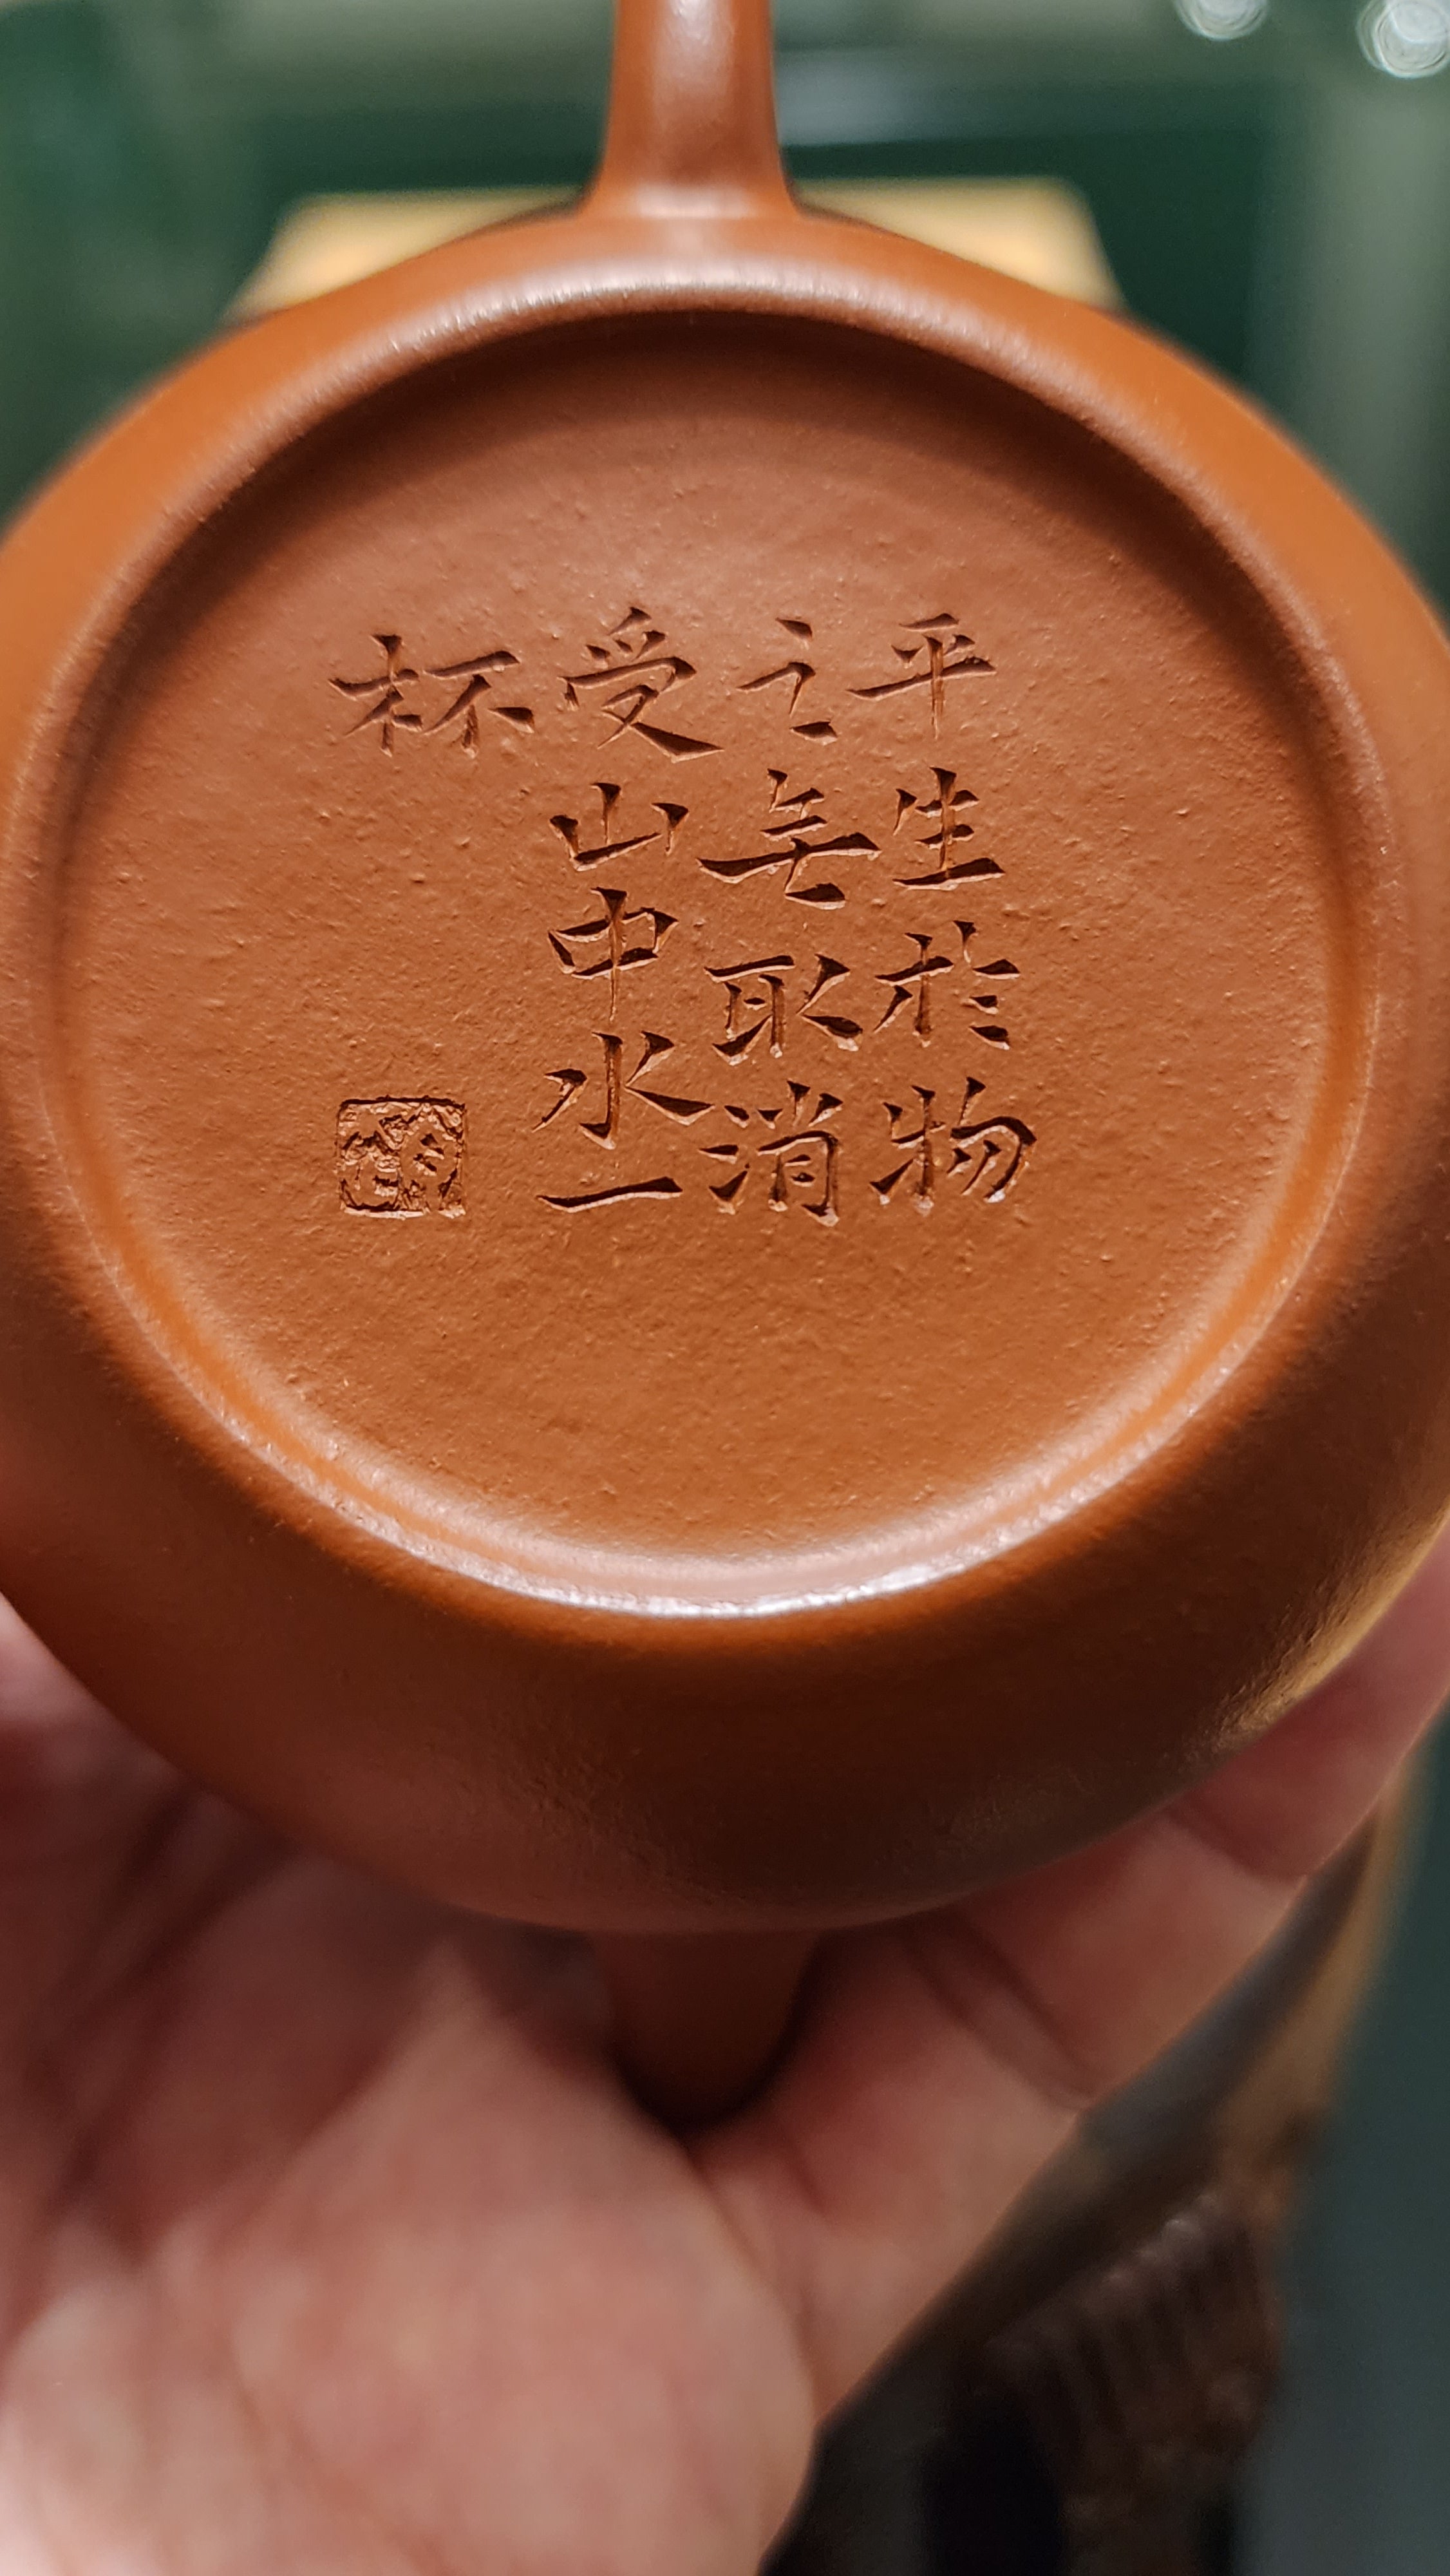 平生於物
之無取消
受山中水一
杯